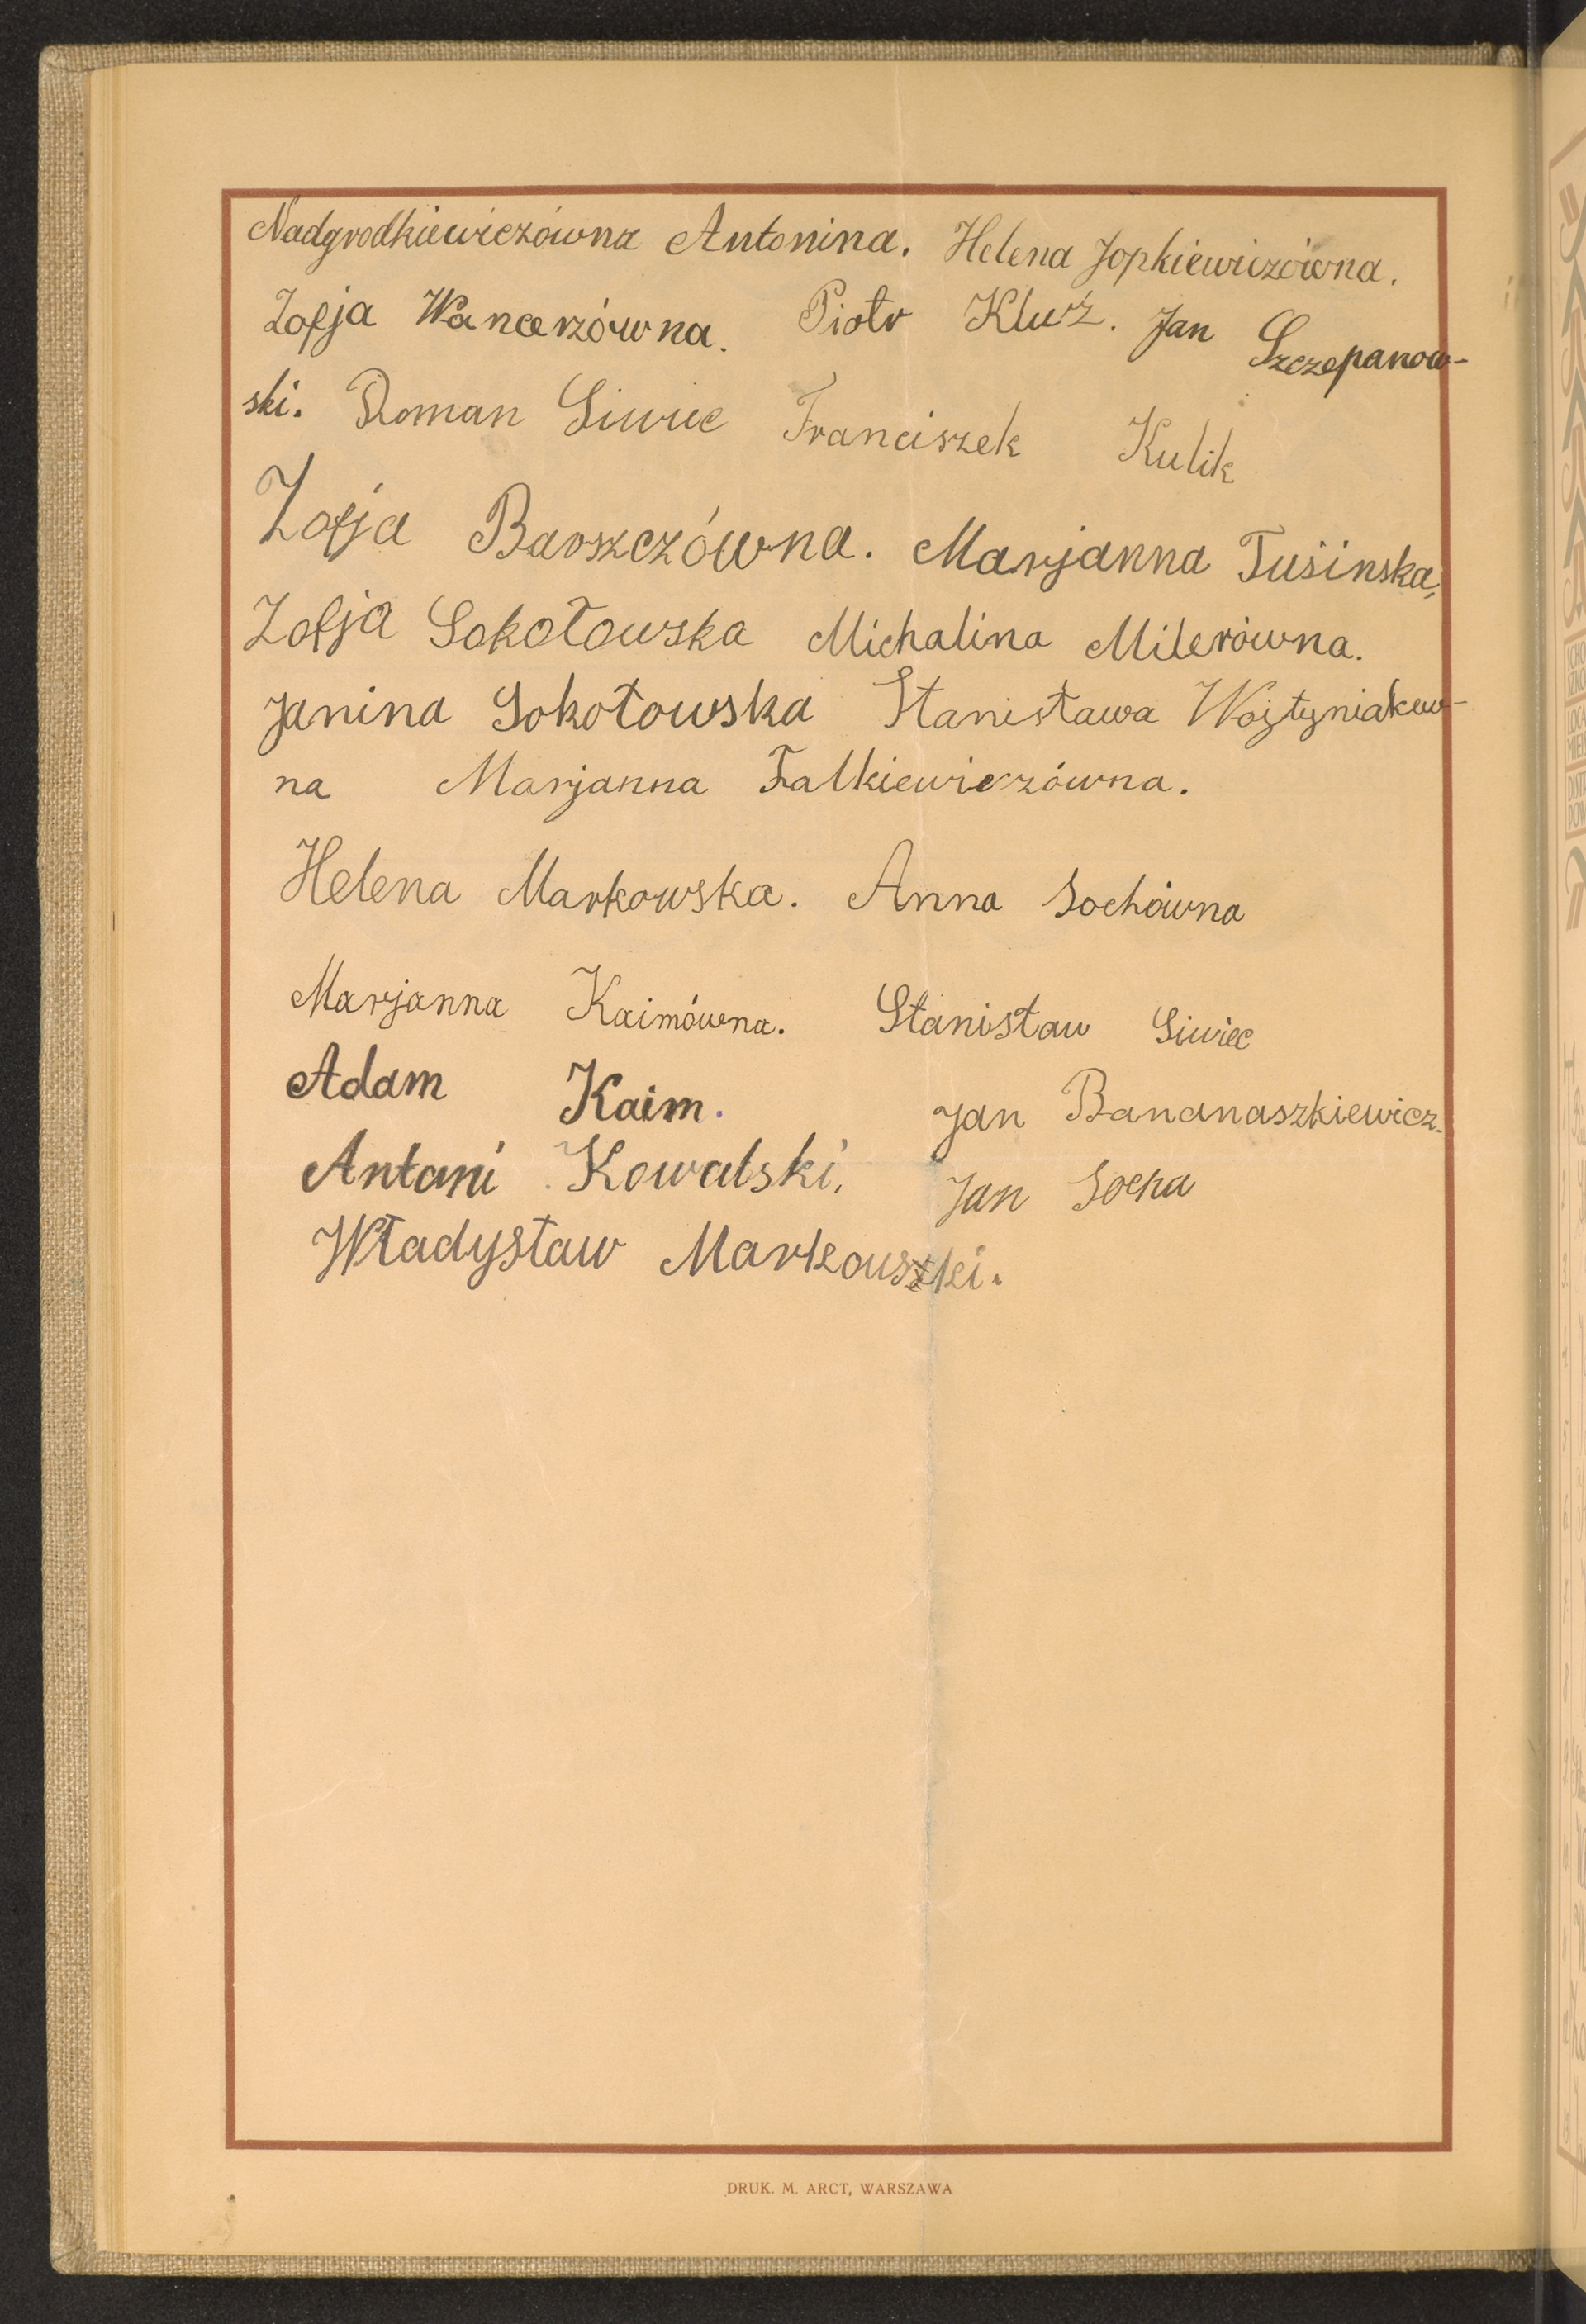 Nadgrodkiewiczówna Antonina. Helena Jopkiewiczówna.
Zofja Wancerzówna. Piotr Kluź. Jan Szczepanow-
ski. Roman Siwiec Franciszek Kulik
Zofja Barszczówna. Marjanna Tusinska,
Zofja Sokołowska Michalina Milerówna.
Janina Sokołowska Stanisława Wojtyniakow-
na Marjanna Falkiewiczówna.
Helena Markowska. Anna Sochówna
Marjanna Kaimówna. Stanisław Siwiec
Adam Kaim. Jan Bananaszkiewicz.
Antoni Kowalski, Jan Socha
Władysław Markowski.
DRUK. M. ARCT, WARSZAWA